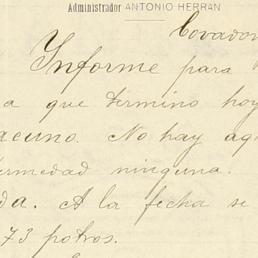 Administrador ANTONIO HERRAN
Covadon
Informe para
a que termino hoy
acuno. No hay ag
ermedad ninguna.
da. A la fecha se
73 potros.